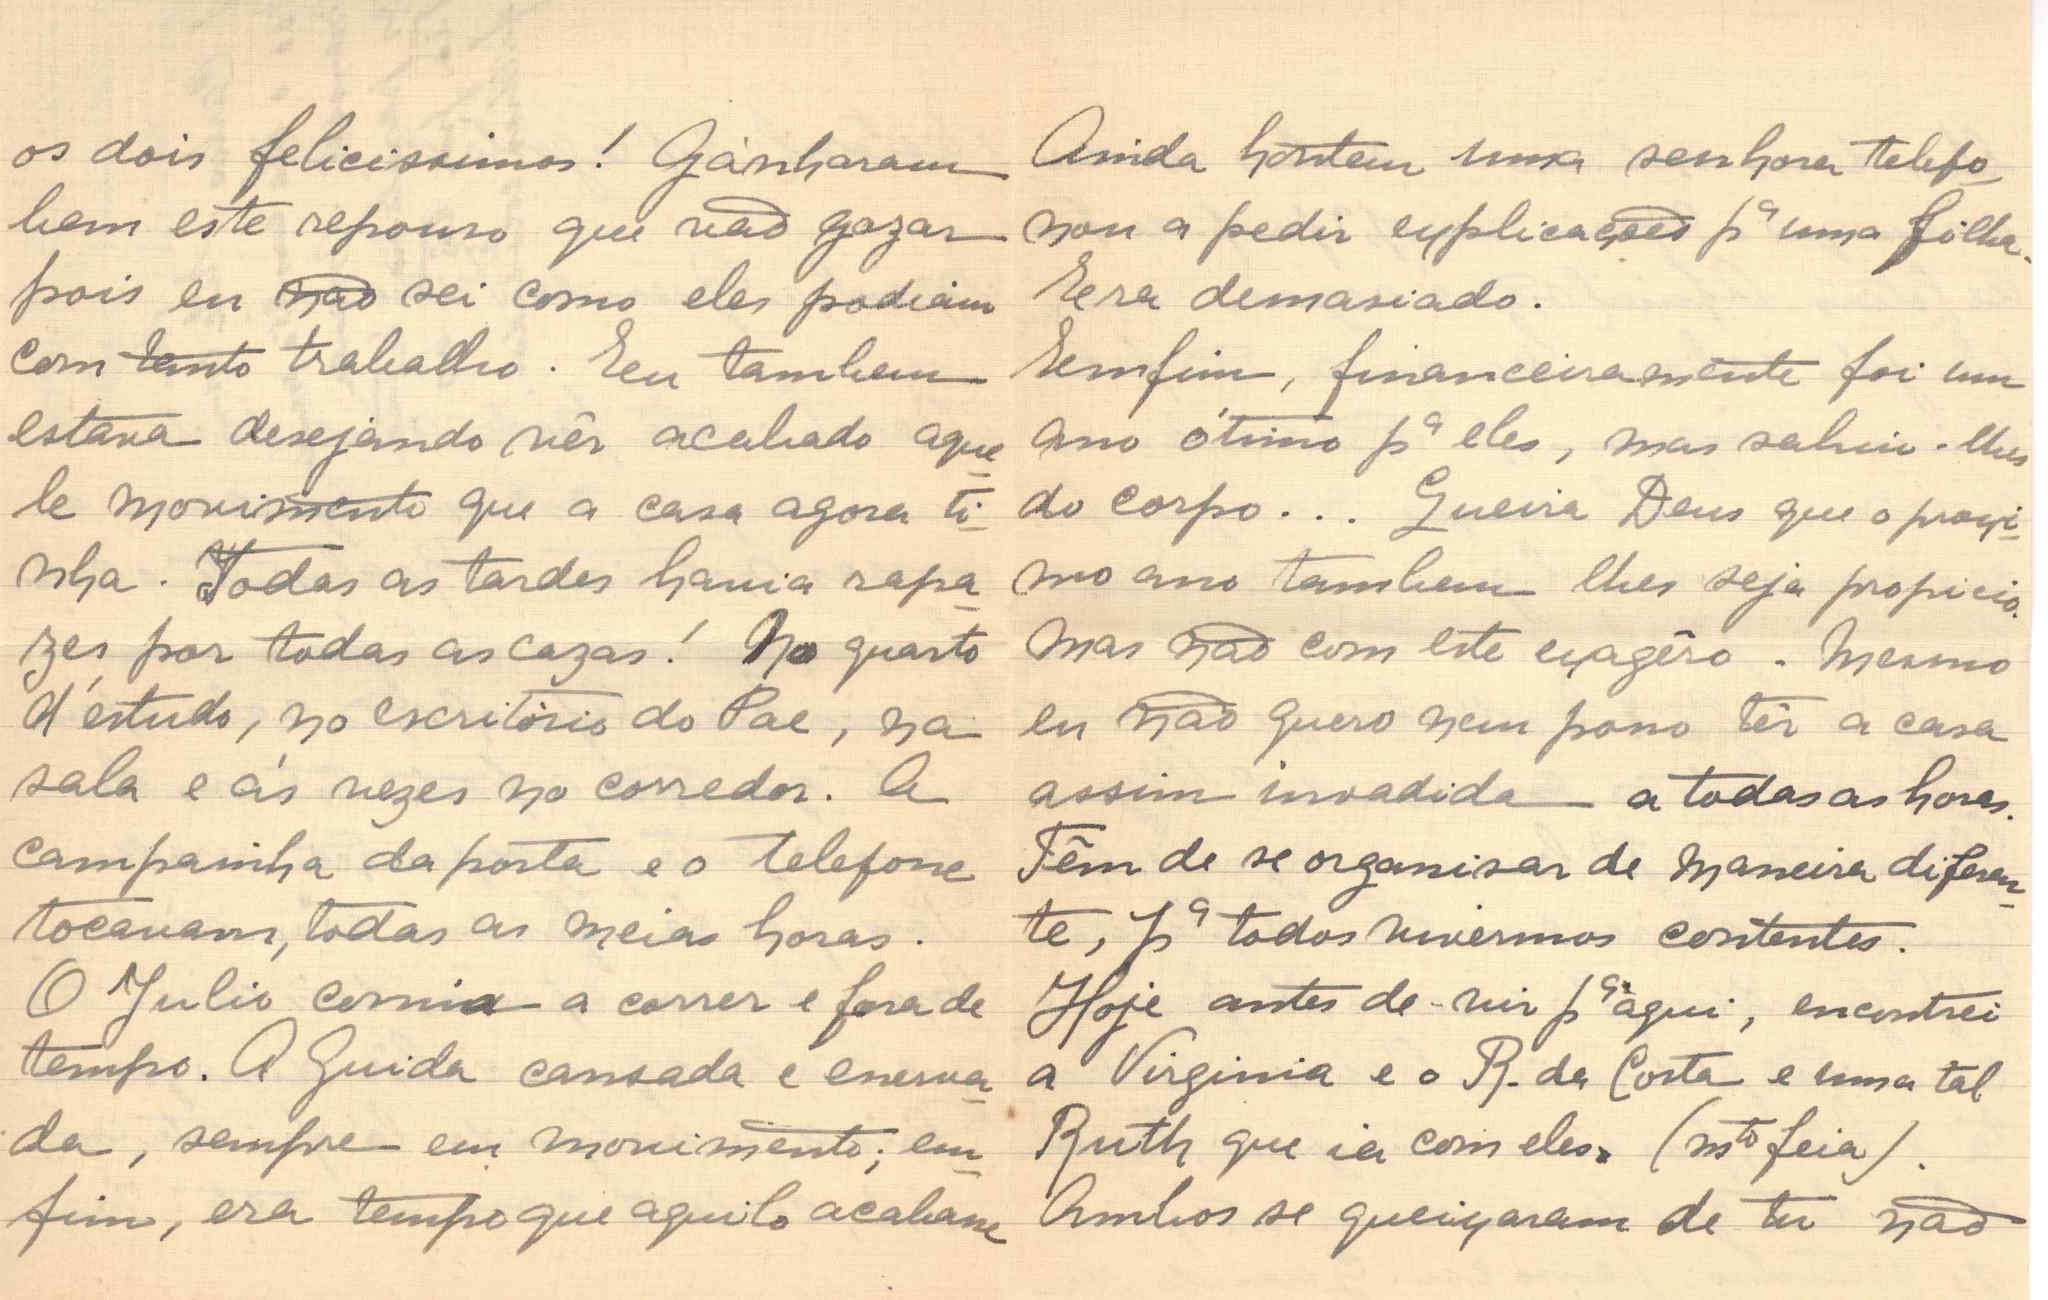 os dois felicissimos! Gánharam
bem este repouso que vão gozar
pois eu não sei como eles podiam
com tanto trabalho. Eu tambem
estava desejando vêr acabado aque-
le movimento que a casa agora ti-
nha. Todas as tardes havia rapa-
zes por todas as cazas! No quarto
d'estudo, no escritório do Pae, na
sala e ás vezes no corredor. A
campainha da porta e o telefone
tocavam, todas as meias horas.
O Julio comia a correr e fora de
tempo. A Guida cansada e enerva-
da, sempre em movimento; em-
fim, era tempo que aquilo acabasse
Ainda hontem uma senhora telefo-
nou a pedir explicações pª uma filha.
Era demasiado.
Emfim, financeiramente foi um
ano ótimo pª eles, mas sahiu-lhes
do corpo... Queira Deus que o proxi-
mo ano tambem lhes seja propicio.
mas não com este exagêro. Mesmo
eu não quero nem posso têr a casa
assim invadida a todas as horas.
Têm de se organisar de maneira diferen-
te, pª todos vivermos contentes.
Hoje antes de vir pª aqui, encontrei
a Virginia e o R. da Costa e uma tal
Ruth que ia com eles. (mto feia).
Ambos se queixaram de tu não